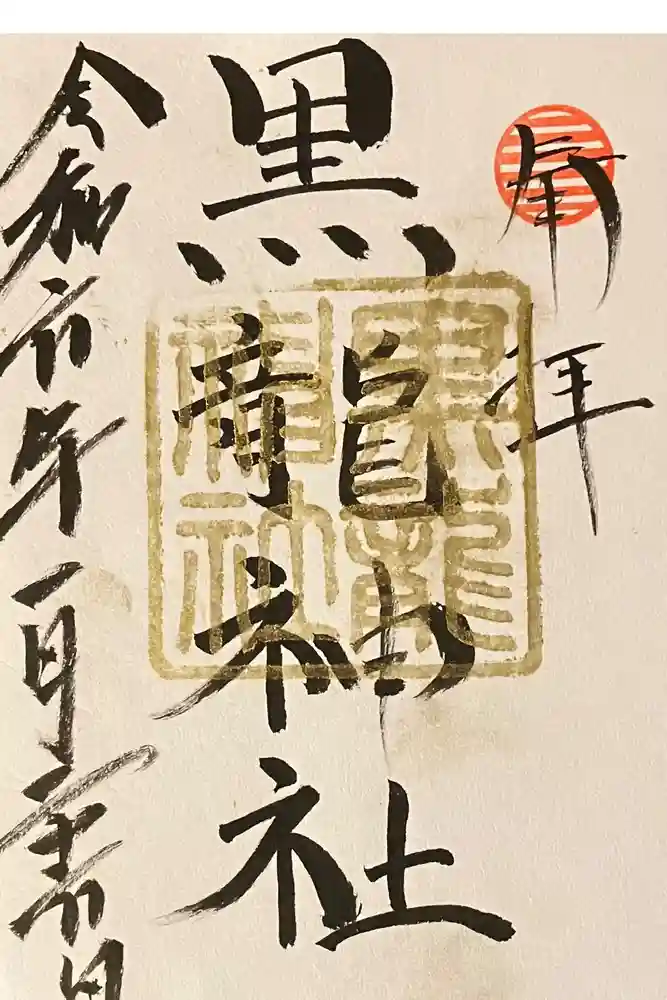 奉拝
黒龍神社
黒龍
神社
令和六年一月